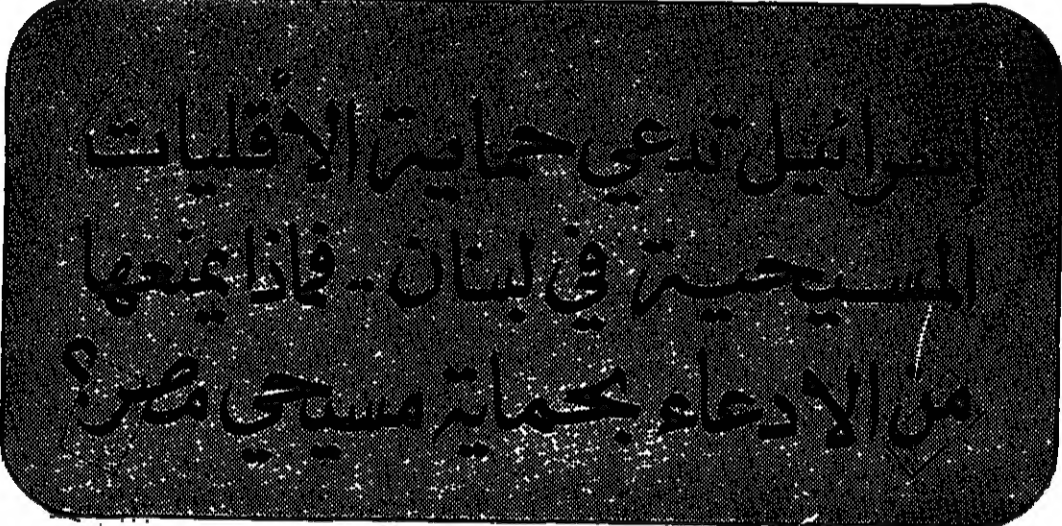 إسرائيل تدعي حماية الأقليات
المسيحية في لبنان - فماذا يمنعها
من الادعاء بحماية مسيحي مصر؟